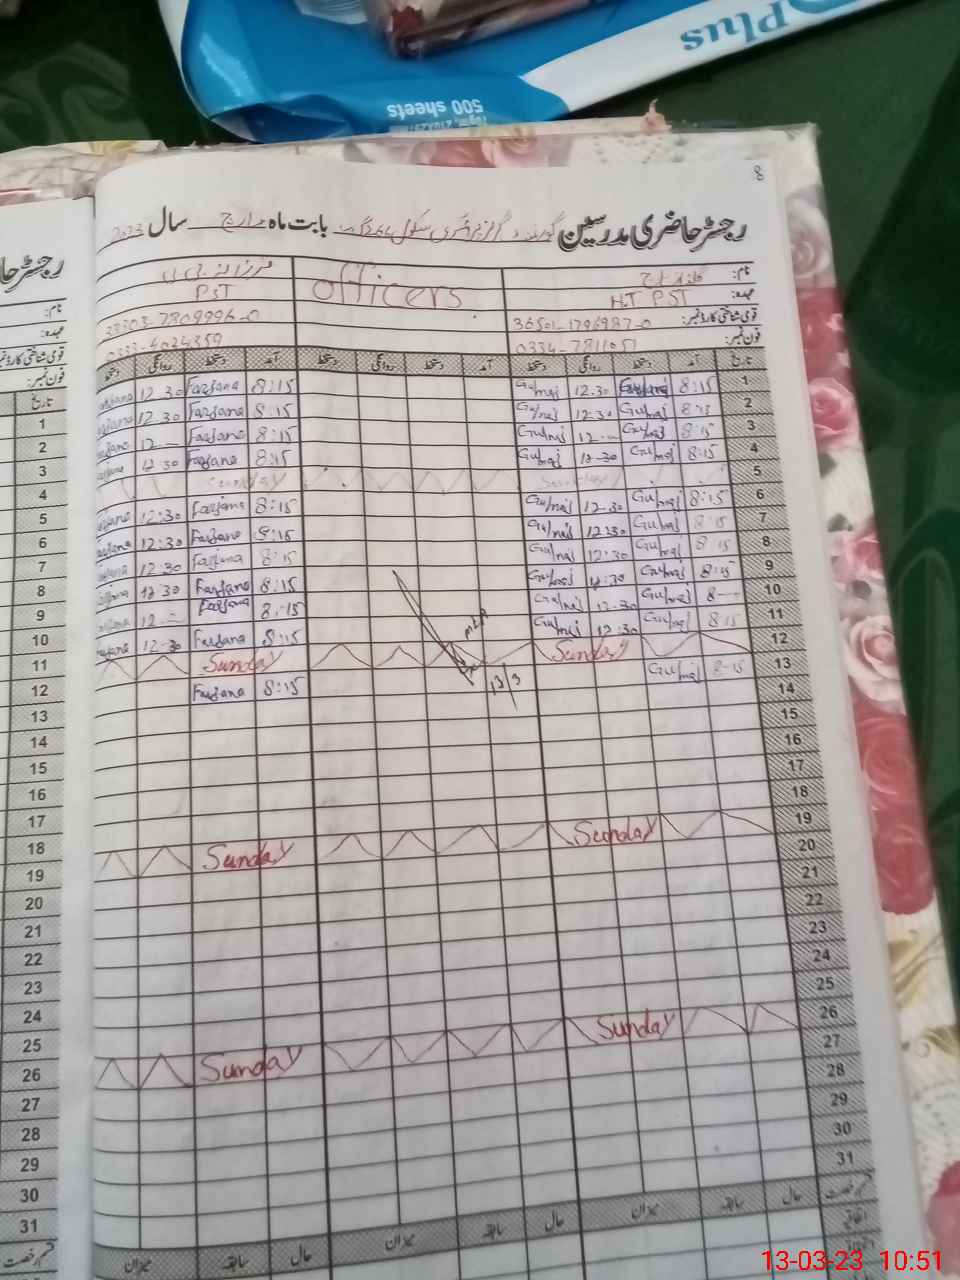 Plus
500 sheets
8
رجسٹر حاضری مدرسین گورنمنٹ گرلز پرائمری سکول بابت ماہ مارچ سال 2023
نام:
عہدہ: HT PST Officers PST
قومی شناختی کارڈ نمبر: 36501-1796987-0
فون نمبر: 0334-7811051 0333-4024359
تاریخ آمد دستخط روانگی دستخط آمد دستخط روانگی دستخط آمد دستخط روانگی دستخط
1 8:15 Farzana 12.30 Gulnaj 8:15 Farzana 12.30 Farzana
2 8:15 Gulnaj 12.30 Gulnaj 8:15 Farzana 12.30 Farzana
3 8:15 Gulnaj 12- Gulnaj 8:15 Farzana 12- Farzana
4 8:15 Gulnaj 12-30 Gulnaj 8:15 Farzana 12-30 Farzana
5 Sunday Sunday
6 8:15 Gulnaj 12-30 Gulnaj 8:15 Farzana 12:30 Farzana
7 8:15 Gulnaj 12:30 Gulnaj 8:15 Farzana 12:30 Farzana
8 8:15 Gulnaj 12:30 Gulnaj 8:15 Farzana 12:30 Farzana
9 8:15 Gulnaj 12:30 Gulnaj 8:15 Farzana 12:30 Farzana
10 8-- Gulnaj 12-30 Gulnaj 8:15 Farzana 12-- Farzana
11 8:15 Gulnaj 12:30 Gulnaj 8:15 Farzana 12-30 Farzana
12 Sunday Sunday
13 8-15 Gulnaj 13/3 8:15 Farzana
14
15
16
17
18
19 Sunday Sunday
20
21
22
23
24
25
26 Sunday Sunday
27
28
29
30
31
قسم رخصت حال سابقہ میزان حال سابقہ میزان حال سابقہ میزان
اتفاقیہ
رجسٹر حا
نام:
عہدہ:
قومی شناختی کارڈ نمبر
فون نمبر:
تاریخ
1
2
3
4
5
6
7
8
9
10
11
12
13
14
15
16
17
18
19
20
21
22
23
24
25
26
27
28
29
30
31
قسم رخصت
13-03-23 10:51